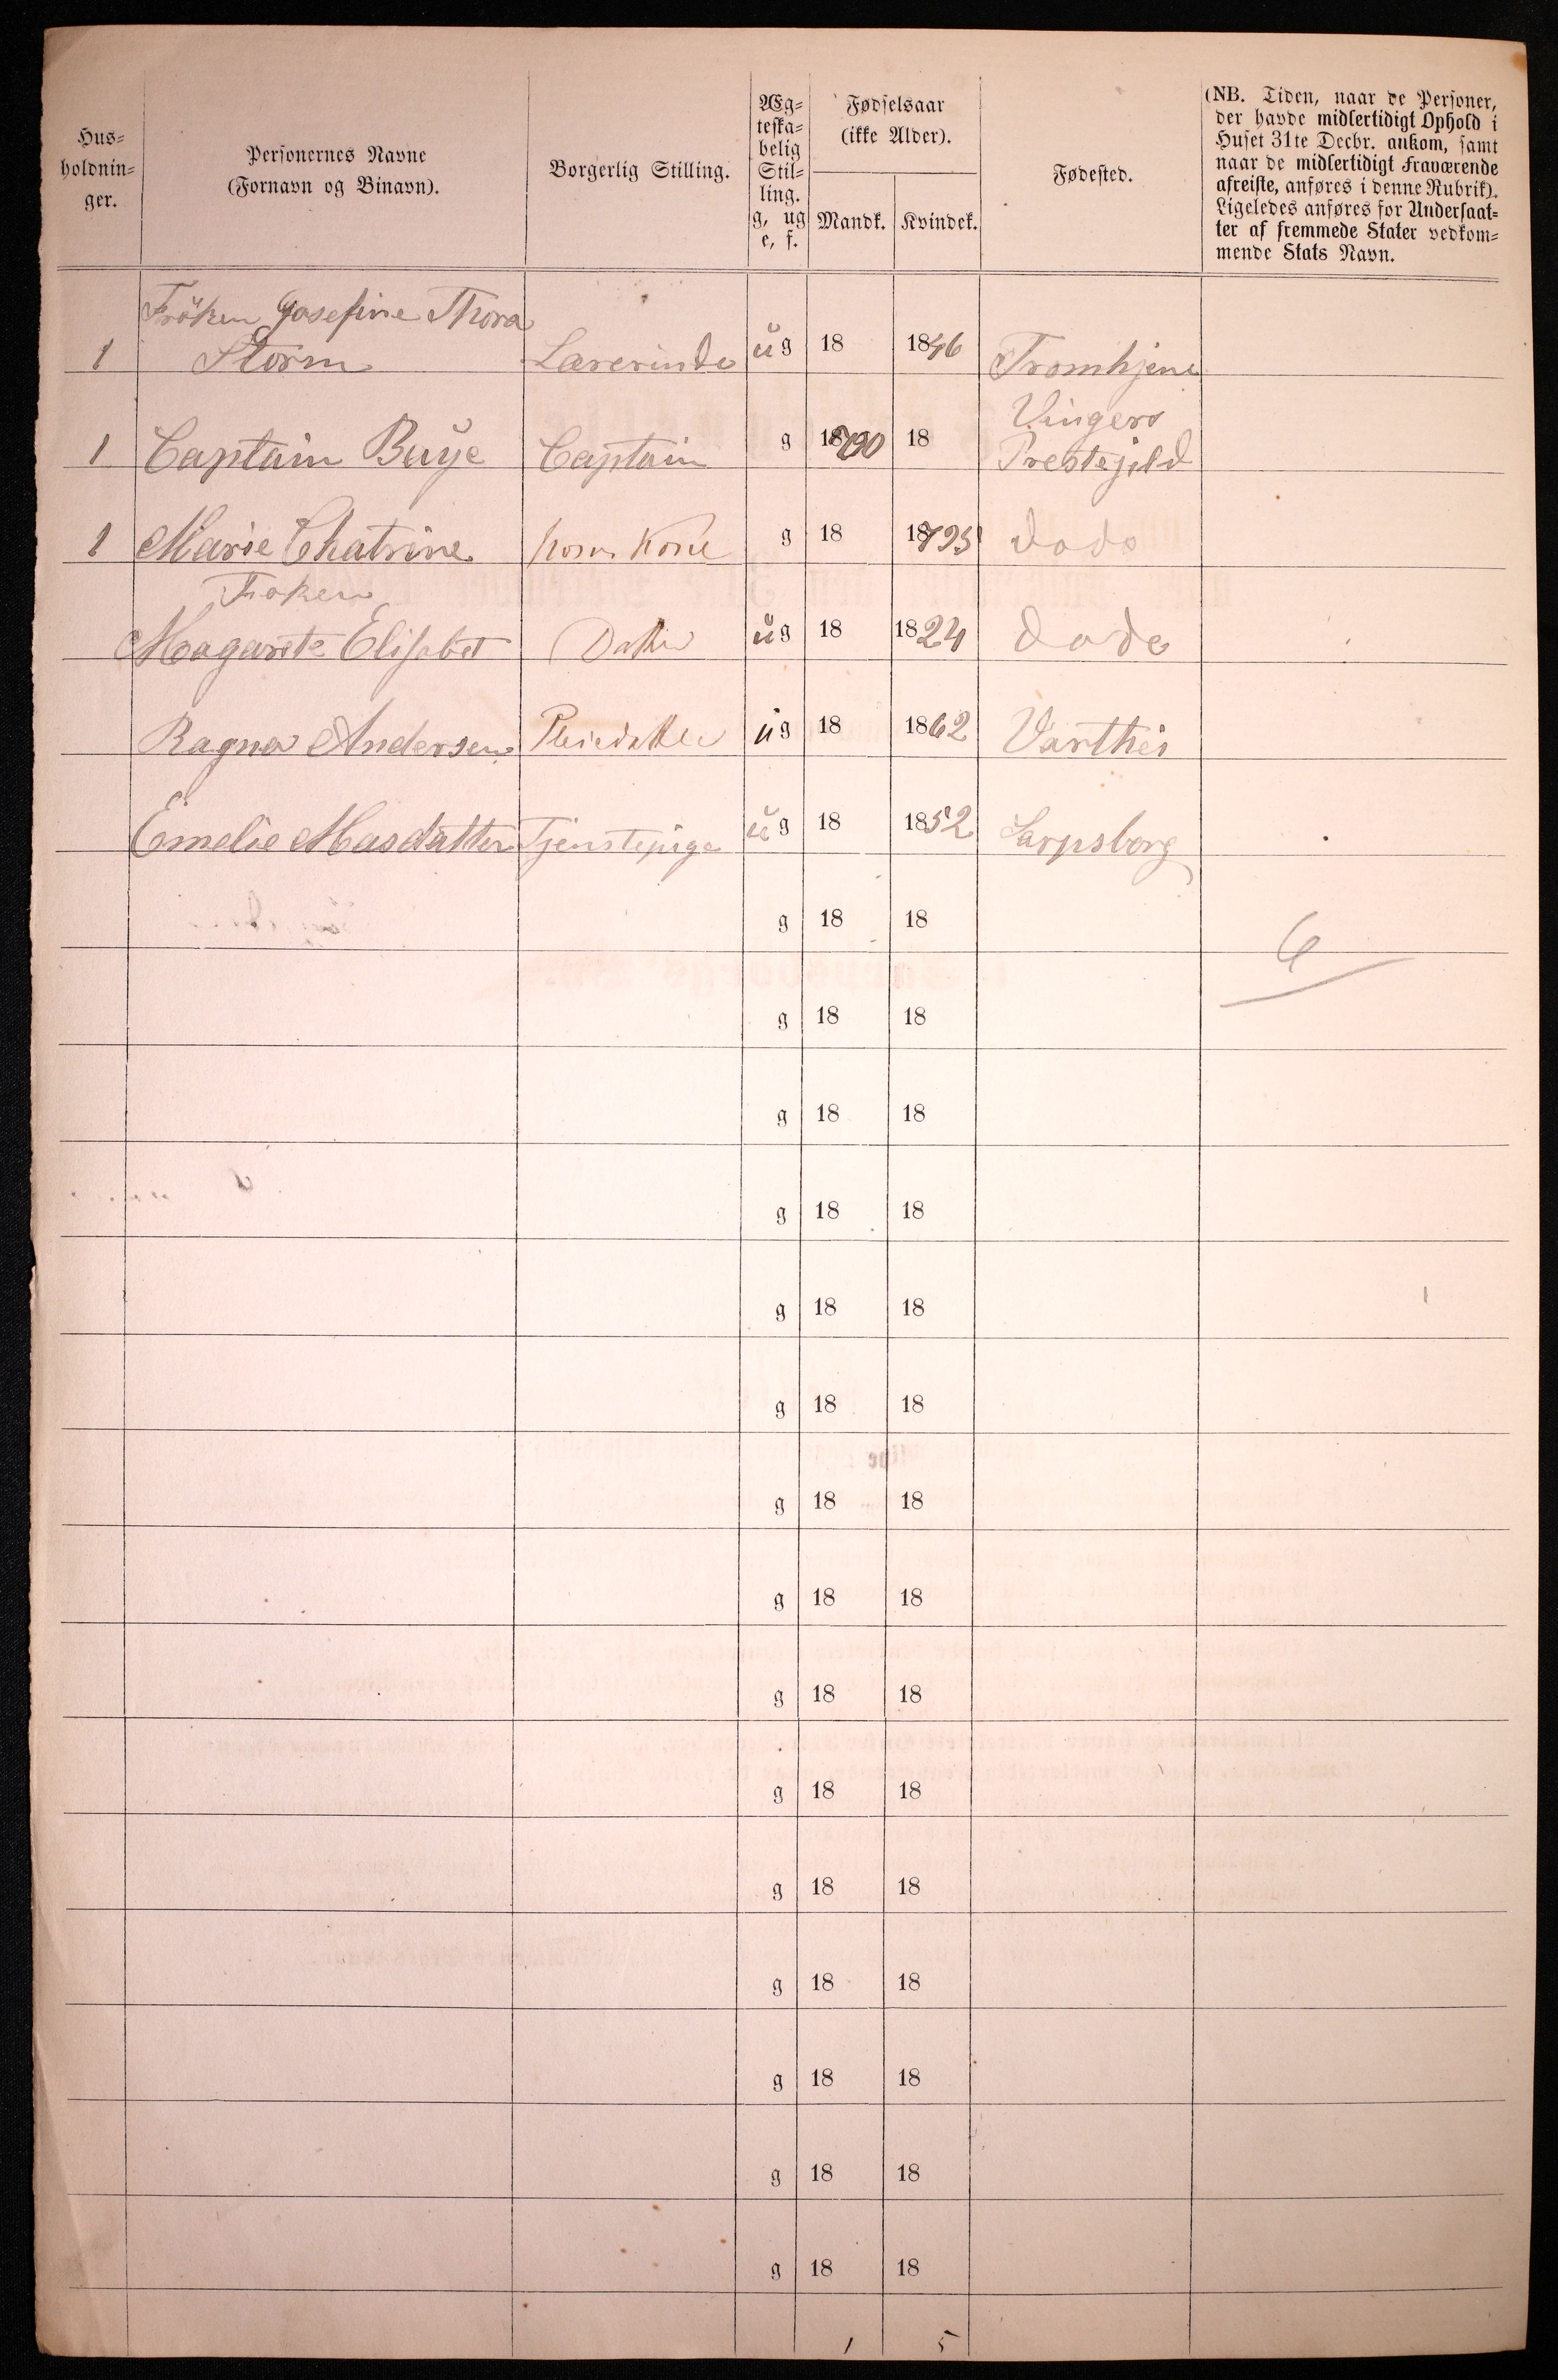 Hus-
holdnin-
ger.
Personernes Navne
(Fornavn og Binavn).
Borgerlig Stilling.
Æg-
teska-
belig
Stil-
ling.
g, ug
e, f.
Fødselsaar
(ikke Alder).
Mandk.
Kvindek.
Fødested.
(NB. Tiden, naar de Personer,
der havde midlertidigt Ophold i
Huset 31te Decbr. ankom, samt
naar de midlertidigt Fraværende
afreiste, anføres i denne Rubrik).
Ligeledes anføres for Undersaat-
ter af fremmede Stater vedkom-
mende Stats Navn.
Fröken Josefine Thora
1 Storm Lærerinde ŭg 18 1846 Tromhjene
Vingers
1 Captain Captain g 18 790 18 Prestejeld
1 Marie Chatrine Kone g 18 18 795 dodo
Froken
Magarete Elisabet Datter ŭg 18 1824 dode
Ragna Andersen Pleiedatter ŭg 18 1862 Varthei
Emelie Masdatter Tjenstepige ŭg 18 1852 Sarpsborg
g 18 18
6
g 18 18
g 18 18
g 18 18
g 18 18
g 18 18
g 18 18
g 18 18
g 18 18
g 18 18
g 18 18
g 18 18
g 18 18
g 18 18
g 18 18
1 5